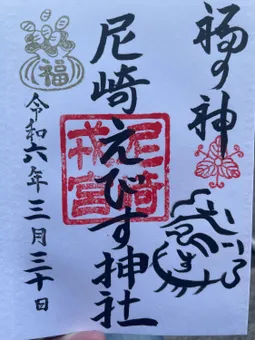 福の神
尼崎えびす神社
尼崎
戎宮
福
令和六年三月三十日